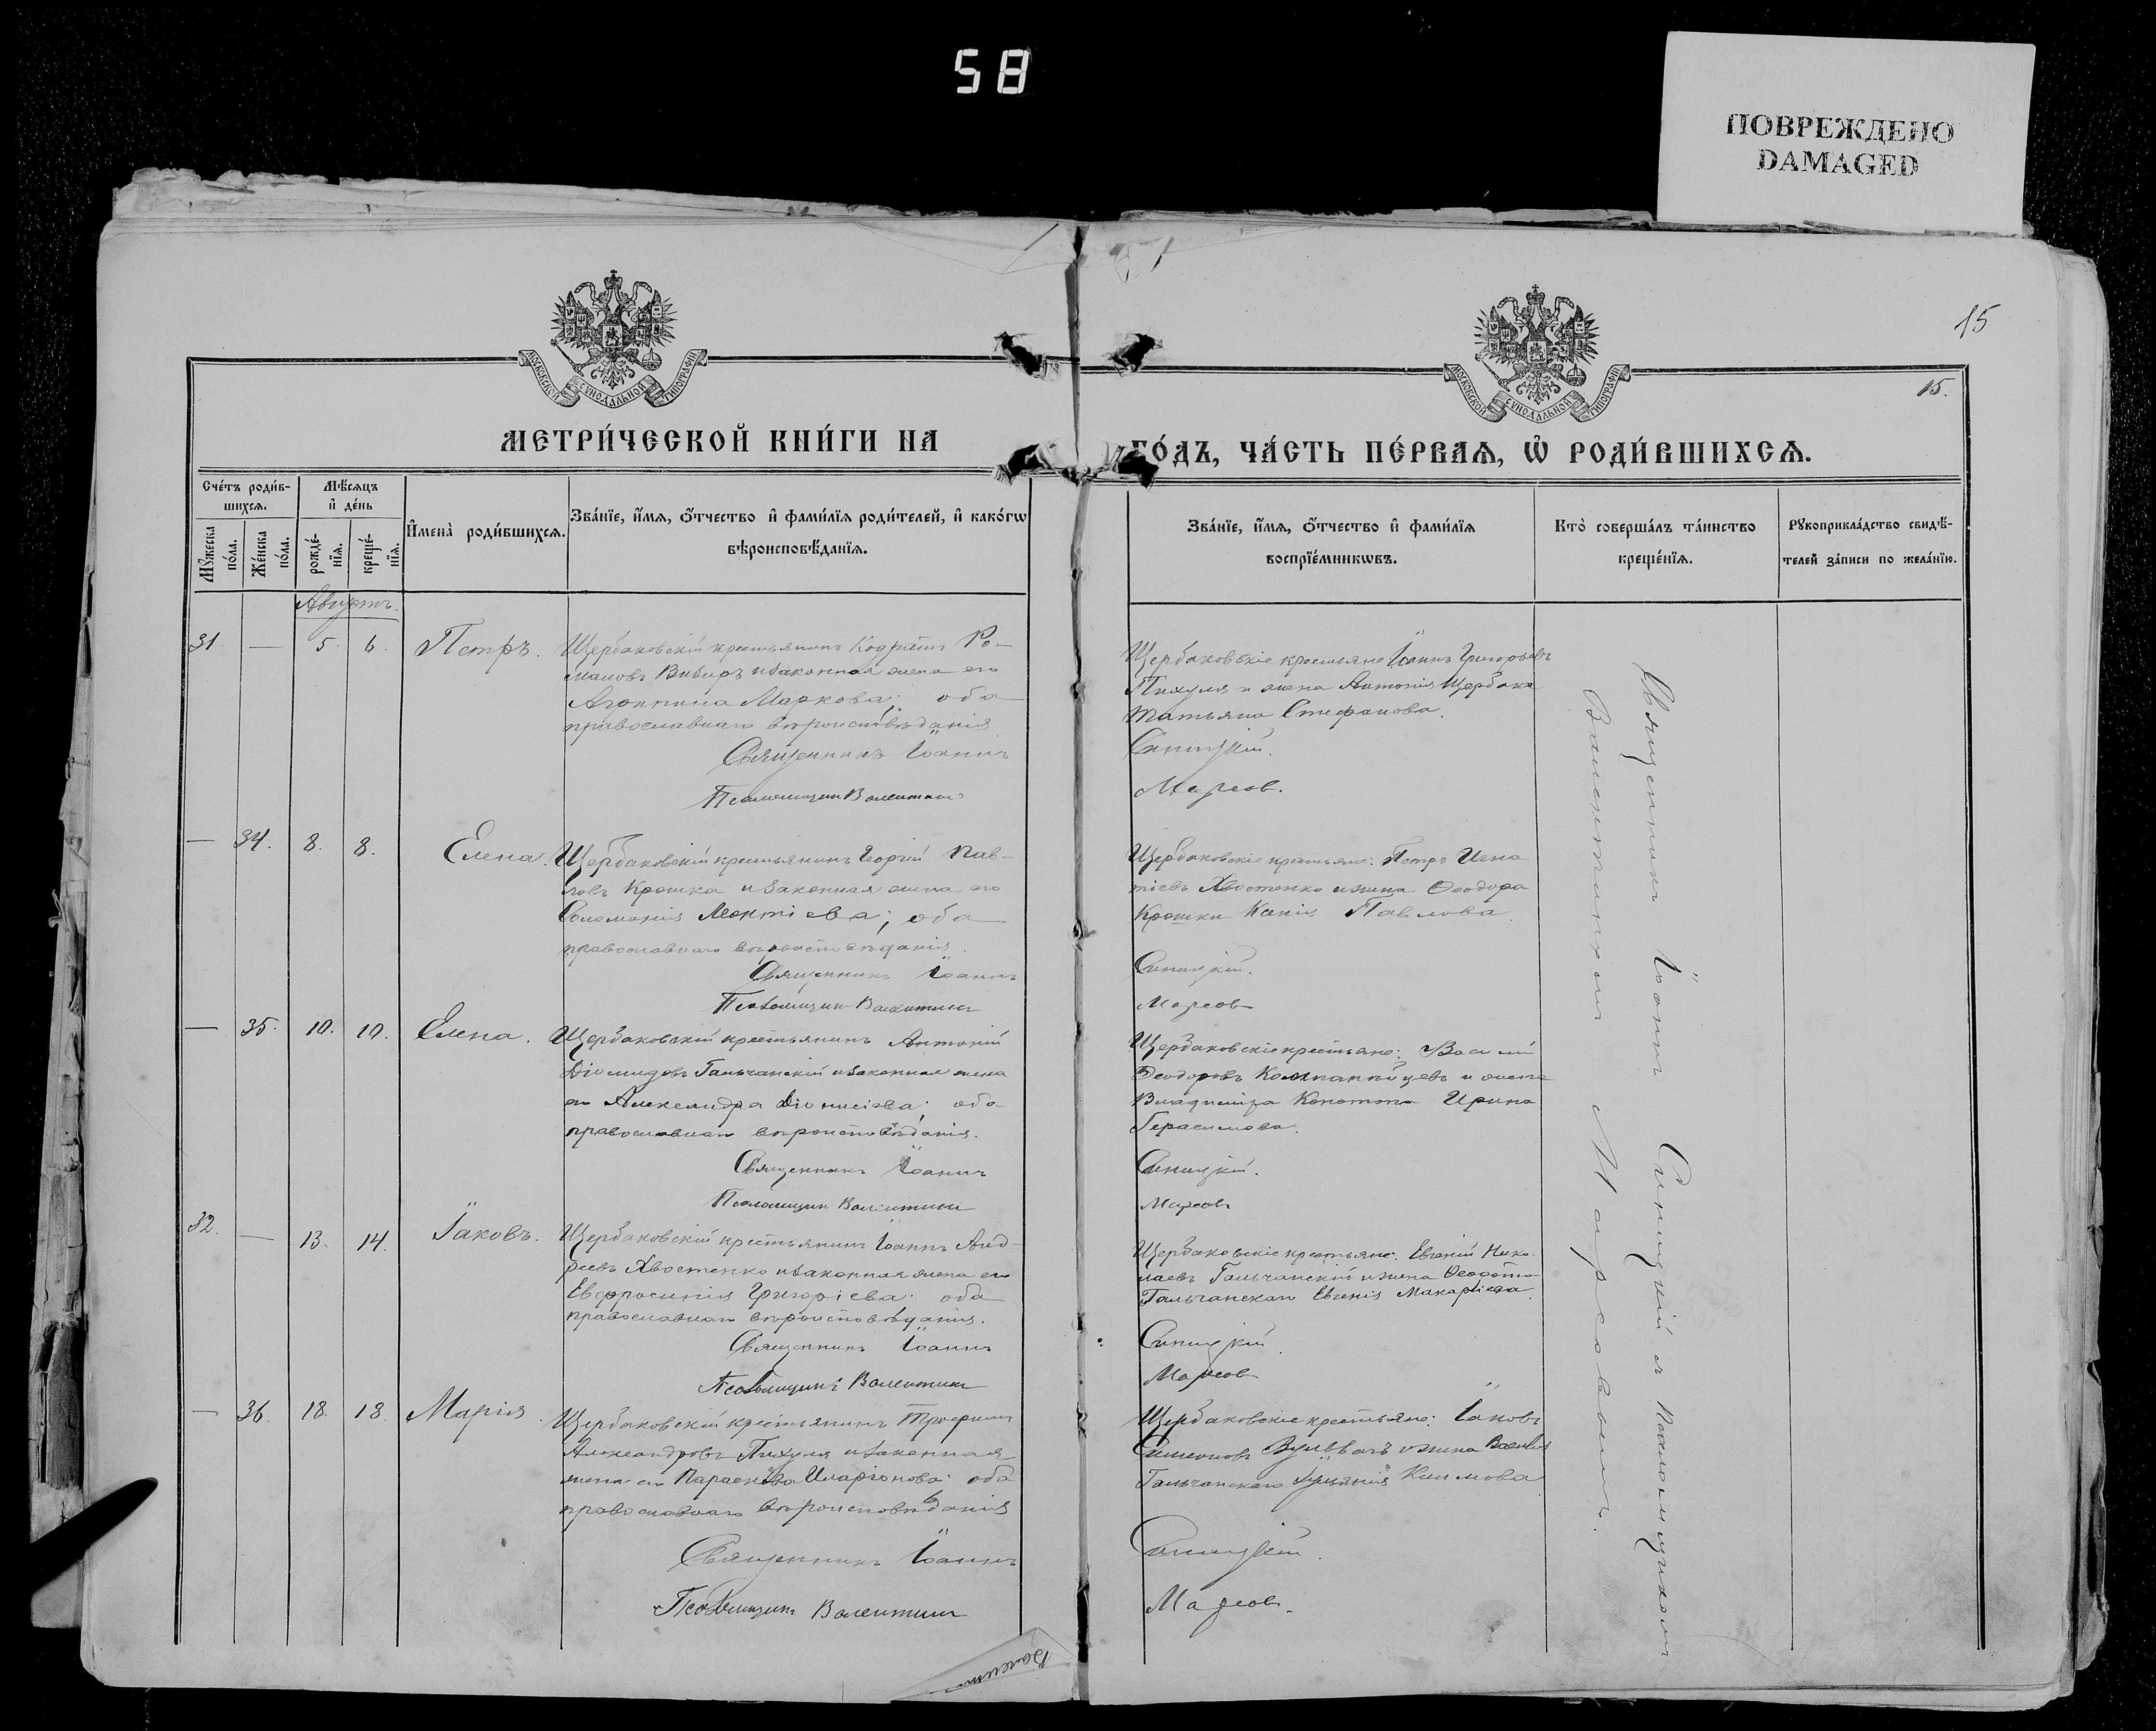 58
ПОВРЕЖДЕНО
DAMAGED
15
МОСКОВСКОЙ СѴНОДАЛЬНОЙ ТИПОГРАФІИ
МОСКОВСКОЙ СѴНОДАЛЬНОЙ ТИПОГРАФІИ
15.
МЕТРИ́ЧЕСКОЙ КНИ́ГИ НА
ГО́ДЪ, ЧА́СТЬ ПЕ́РВАѦ, Ѡ҆ РОДИ́ВШИХСѦ.
Сче́тъ роди́в-
шихсѧ.
Мꙋ́жеска
по́ла.
Же́нска
по́ла.
Мѣ́сѧцъ
и҆ де́нь
рожде́-
нїѧ.
креще́-
нїѧ.
И҆мена̀ роди́вшихсѧ.
Зва́нїе, и҆́мѧ, ѻ҆́тчество и҆ фами́лїѧ роди́телей, и҆ како́гѡ
вѣроисповѣ́данїѧ.
Зва́нїе, и҆́мѧ, ѻ҆́тчество и҆ фами́лїѧ
воспрїе́мникѡвъ.
Кто̀ соверша́лъ та́инство
креще́нїѧ.
Рꙋкоприкла́дство свидѣ́-
телей за́писи по жела́нїю.
Августъ.
31. — 5. 6. Петръ.
Щербаковскій крестьянинъ Кодратъ Ро-
мановъ Вивиръ и законная жена его
Агриппина Маркова; оба
православнаго вѣроисповѣданія
Священникъ Іоаннъ
Псаломщикъ Валентинъ
Щербаковскіе крестьяне Іоаннъ Григорьевъ
Пихуля и жена Антонія Щербака
Татьяна Стефанова.
Синицкій.
Марсов.
— 34. 8. 8. Елена.
Щербаковскій крестьянинъ Георгій Пав-
ловъ Крошка и законная жена его
Соломонія Леонтіева; оба
православнаго вѣроисповѣданія.
Священникъ Іоаннъ
Псаломщикъ Валентинъ
Щербаковскіе крестьяне: Петръ Игна
тіевъ Хвостенко и жена Ѳеодора
Крошки Ксенія Павлова.
Синицкій.
Марсов
— 35. 10. 10. Елена.
Щербаковскій крестьянинъ Антоній
Діомидовъ Гальчанскій и законная жена
его Александра Діонисіева; оба
православнаго вѣроисповѣданія.
Священникъ Іоаннъ
Псаломщикъ Валентинъ
Щербаковскіе крестьяне: Василій
Ѳеодоровъ Компаніицевъ и жена
Владиміра Конотопа Ирина
Герасимова.
Синицкій.
Марсовъ
32. — 13. 14. Іаковъ.
Щербаковскій крестьянинъ Іоаннъ Анд-
реевъ Хвостенко и законная жена его
Евфросинія Григоріева; оба
православнаго вѣроисповѣданія.
Священникъ Іоаннъ
Псаломщикъ Валентинъ
Щербаковскіе крестьяне: Евгеній Нико-
лаевъ Гальчанскій и жена Ѳеодота
Гальчанскаго Евгенія Макаріева.
Синицкій.
Марсов
— 36. 18. 18. Марія.
Щербаковскій крестьянинъ Трофимъ
Александровъ Пихуля и законная
жена его Параскева Иларіонова; оба
православнаго вѣроисповѣданія
Священникъ Іоаннъ
Псаломщикъ Валентинъ
Щербаковскіе крестьяне: Іаковъ
Симеоновъ и жена Василія
Гальчанскаго Іуліанія Климова
Синицкій.
Марсовъ.
Священникъ Іоаннъ Синицкій и псаломщикомъ
Валентиномъ Марсовымъ.
Валент